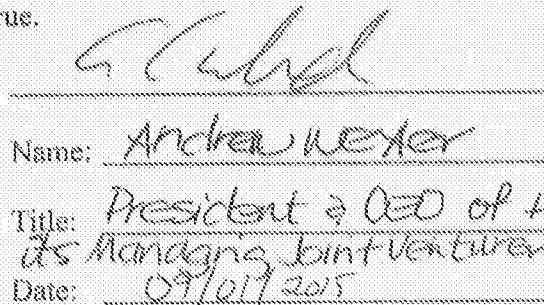 rue.
Name: Andrew Wexler
Title: President & CEO of
its Managing Joint Venturer
Date: 09/01/2015